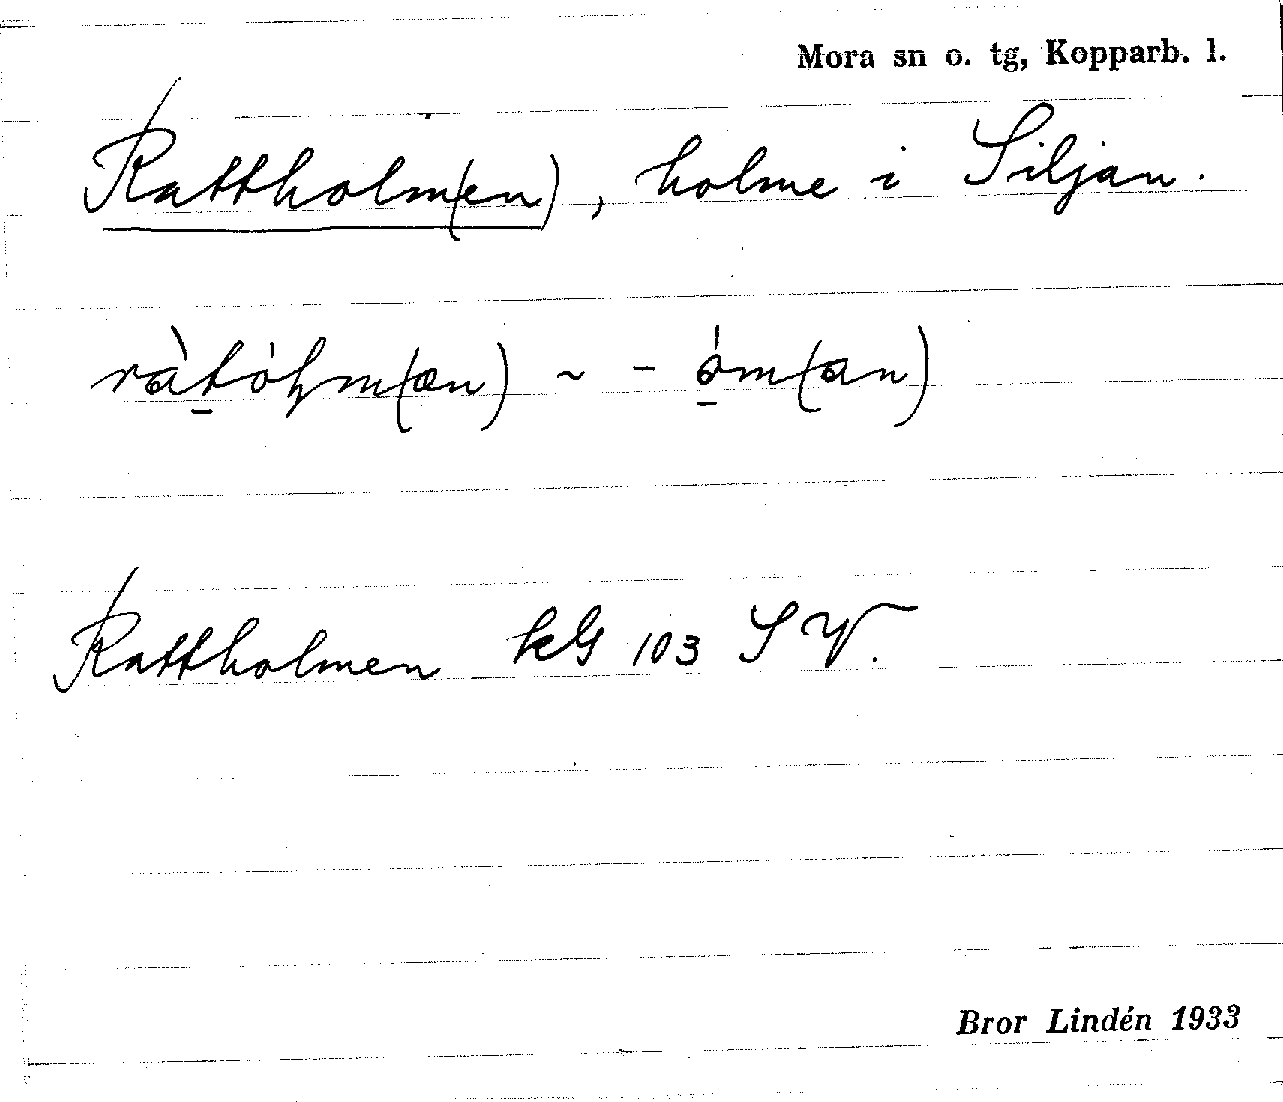 Mora sn o. tg, Kopparb. l.
Rattholm(en), holme i Siljan.
ràt̠óɫm(æn) ~ - ó̠m(an)
Rattholmen kG 103 SV.
Bror Lindén 1933